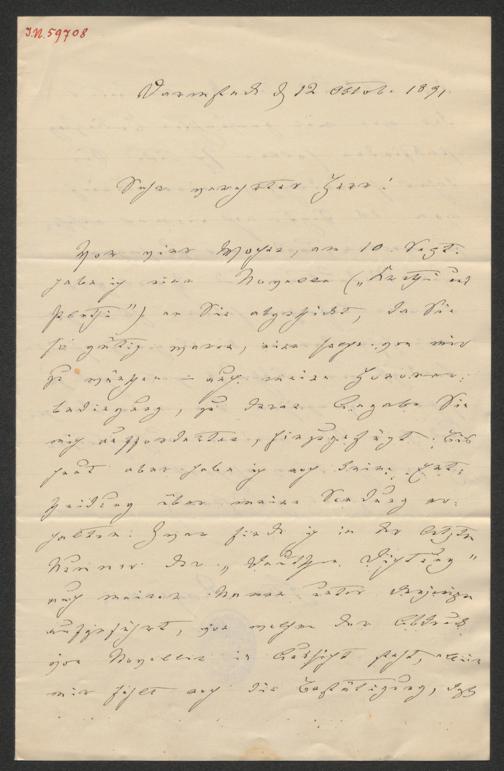 I.N. 59708
Darmstadt d 12 Oktob. 1891.
Sehr verehrter Herr!
Vor vier Wochen, am 10 Sept.
habe ich eine Novelle („Krethi und
Plethi") an Sie abgeschickt, da Sie
so gütig waren, eine solche von mir
zu wünschen – auch meine Honorar-
bedingung, zu deren Angabe Sie
mich aufforderten, hinzugefügt. Bis
heut aber habe ich noch keine Ent-
scheidung über meine Sendung er-
halten. Zwar finde ich in der letzten
Nummer der „Deutschen Dichtung"
auch meinen Namen unter denjenigen
aufgeführt, von welchen der Abdruck
von Novellen in Aussicht steht, allein
mir fehlt noch die Bestätigung, daß